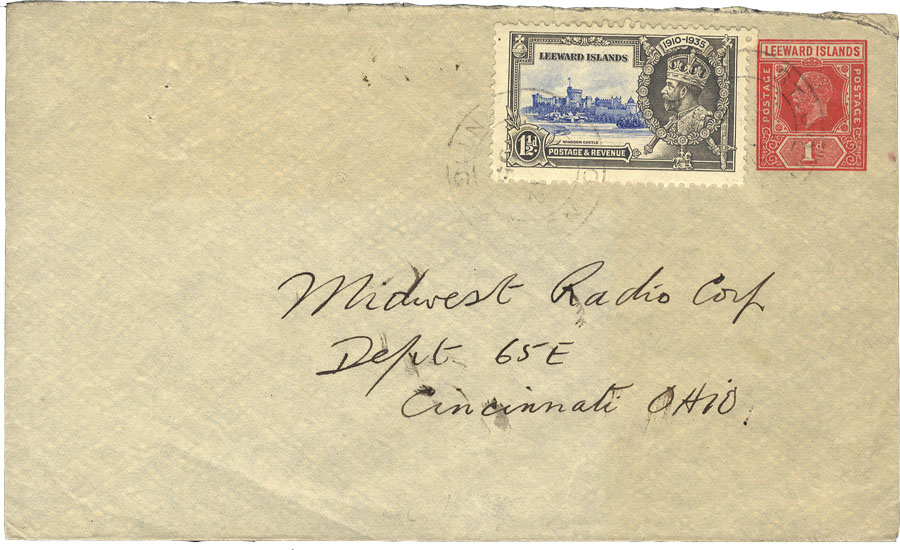 1910-1935
LEEWARD ISLANDS
WINDSOR CASTLE
1½d.
POSTAGE & REVENUE
LEEWARD ISLANDS
POSTAGE
POSTAGE
1d
Midwest Radio Corp
Dept 65E
Cincinnati OHIO